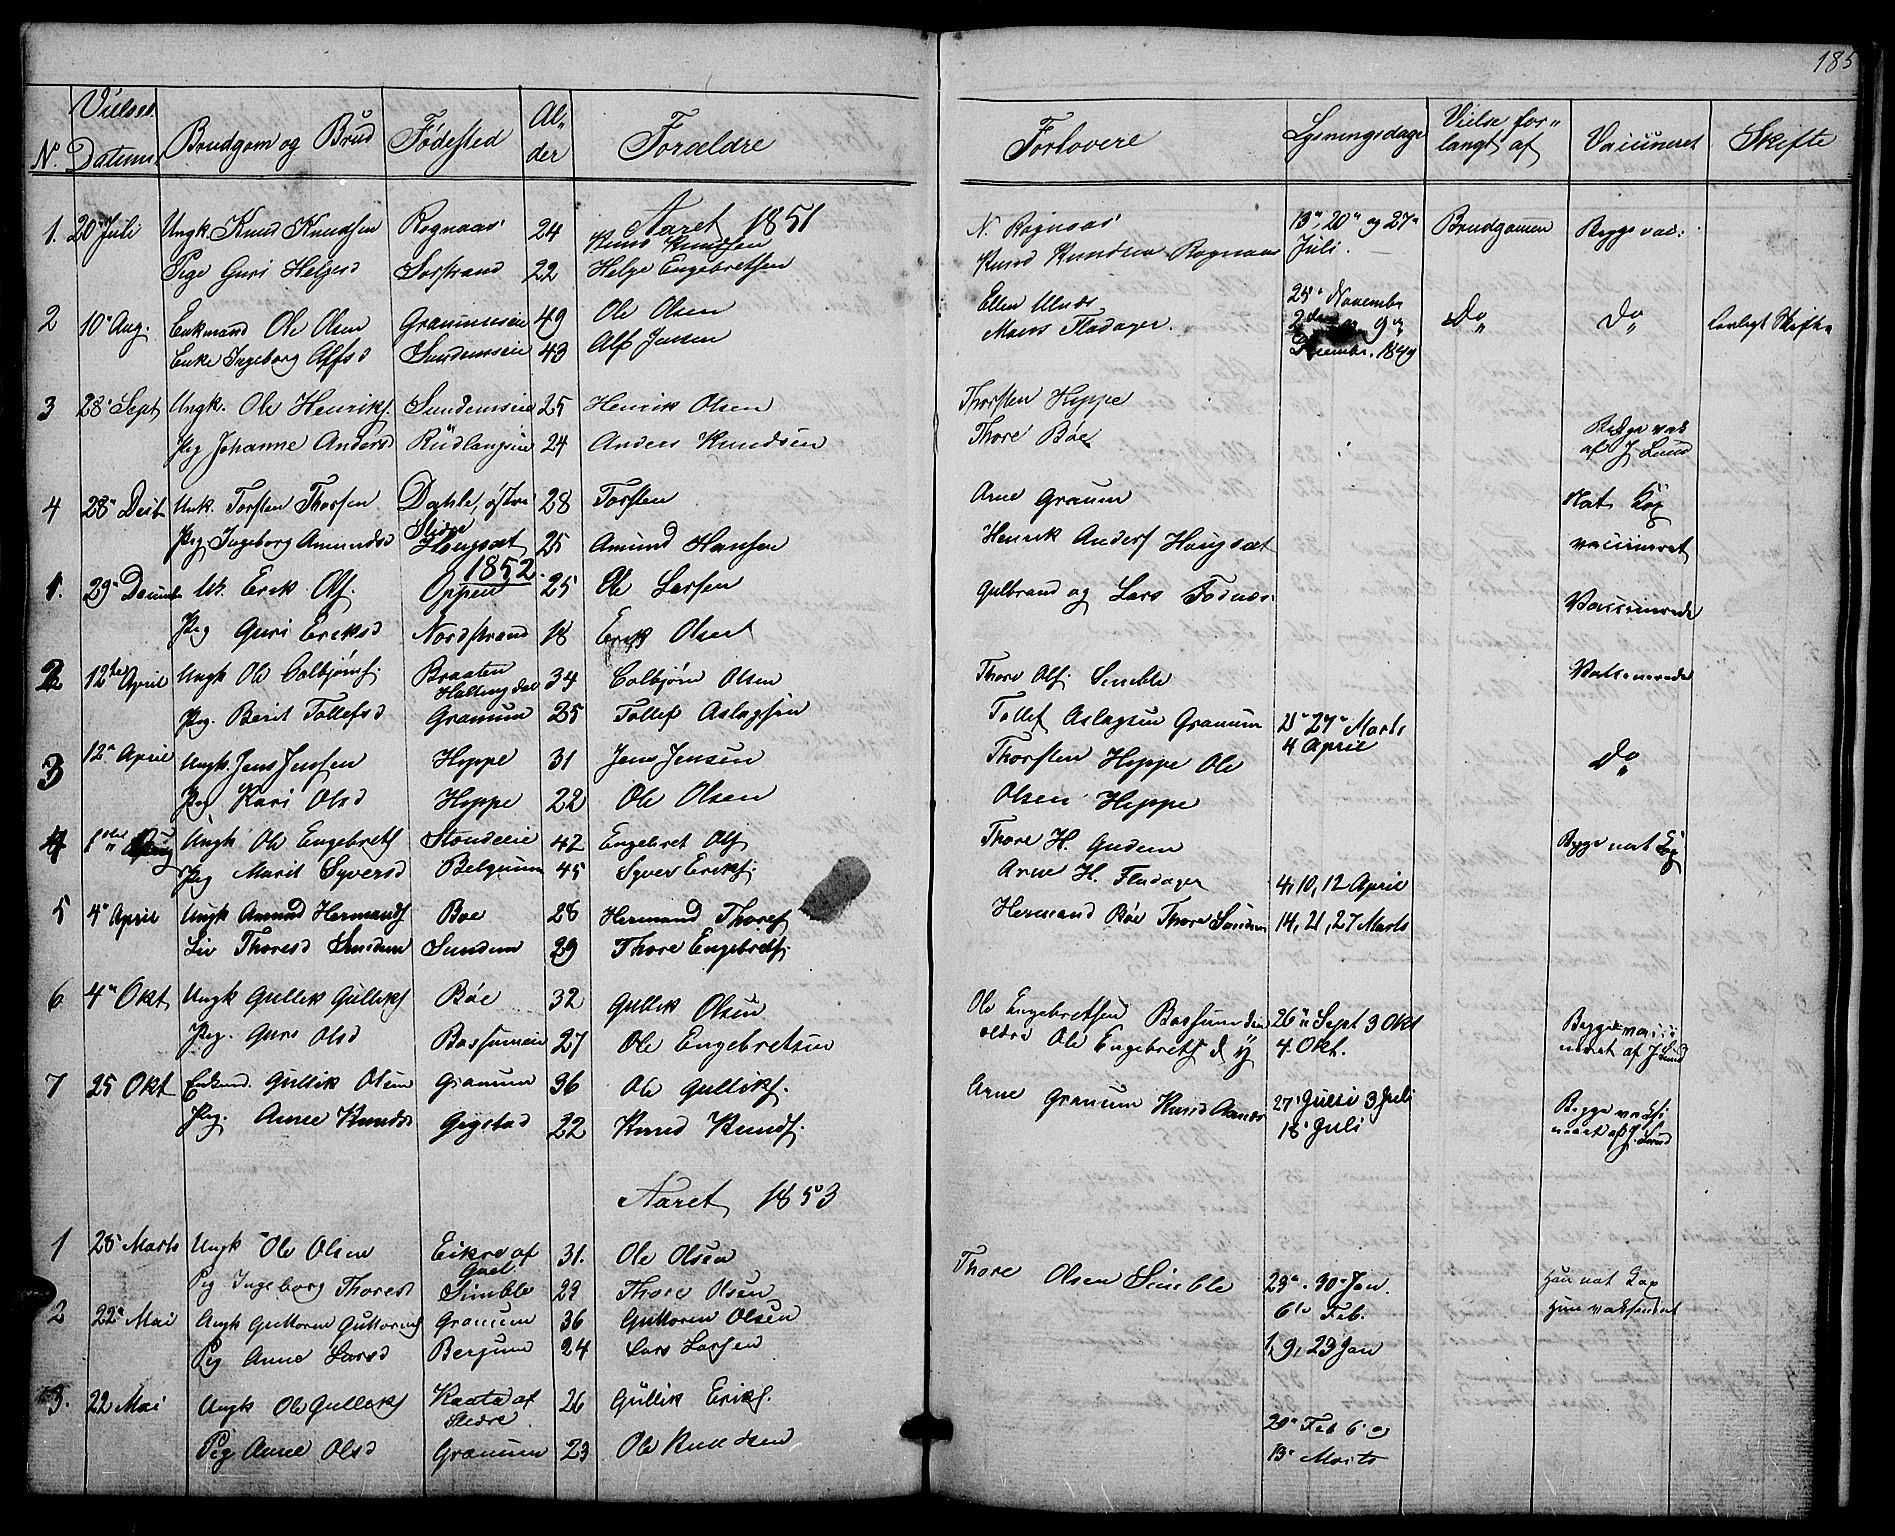 185
N. Vielses Datum Brudgom og Brud Fødested Alder Forældre Forlovere Lysningsdage Vielse forlangt af Vaccineret Skifte
Aaret 1851
1. 20 Juli Ungk. Knud Knudsen Rognaas 24 Knud Knudsen N. Rognaas 13, 20 og 27 Juli. Brudgomen Begge vac:
Pige Guri Helgesd Sørstrand 22 Helge Engebretsen Knud Knudsen Rognaas
2 10 Aug. Enkmand Ole Olsen 49 Ole Olsen Ellen 25 Novembr 2den 9 Decembr. 1849 Do Do lovligt Skifte
Enke Ingeborg Alfsd Sundemseie 43 Alf Jensen Fladager.
3 28 Sept Ungk. Ole Henriks. Sundemseie 25 Henrik Olsen Thorsten Hippe
Pig Johanne Andersd 24 Anders Knudsen Thore Bøe Begge vac af J Lund
4 28 Unk. Torsten Thorsen Dahle, østre Slidre 28 Torsten Arne Granum Nat. Kop
Pig Ingeborg Amundsd Haugsæt 25 Amund Hansen Henrik Anders Haugsæt vaccineret
1852.
1. 29 Decembr Uk. Erik Ols. Oppen 25 Ole Larsen Gulbrand og Lars Fodnæs Vaccinerede
Pig Guri Eriksd Nordstrand 18 Erik Olsen
2 12te April Ungk Ole Colbjörns. Braaten Hallingdal 34 Colbjörn Olsen Thore Ols. Simble Vaksinerede
Pig. Berit Tollefsd Granum 25 Tollef Aslagsen Tollef Aslagsen Granum 21 27 Marts 4 April
3 12 April Ungk. Jens Jensen Hippe 31 Jens Jensen Thorsten Hippe Ole Do
Pig Kari Olsd Hippe 22 Ole Olsen Olsen Hippe
4 1 Ungk Ole Engebrets 42 Engebret Ols Thore H. Begge nat Kop
Pig Marit Syversd Belgum 45 Syver Eriks. Arne H. Fladager 4, 10, 12 April
5 4 April Ungk Amund Hermands Boe 28 Hermand Thores Hermand Bøe Thore Sundem 14, 21, 27 Marts
Liv Thoresd Sundem Sundem 29 Thore Engebrets.
6 4 Okt Ungk Gullik Gulliks Bøe 32 Gullik Olsen Ole Engebretsen den 26 Sept 3 Okt Begge vacci
Pig. Guri Olsd 27 Ole Engebretsen ældre Ole Engebrets d y 4 Okt. neret af J Lund
7 25 Okt Enkmd. Gullik Olsen Granum 36 Ole Gulliks. Arne Granum Knud 27 3 Juli Begge vaksi
Pig. Anne Knudsd Gigstad 22 Knud Knuds. 18 Juli neret af J. Lund
Aaret 1853
1 28 Marts Ungk Ole Olsen Eikre af 31. Ole Olsen Thore Olsen Simble 23 30 Jan. Han nat Kop
Pig Ingeborg Thoresd Simble 23 Thore Olsen 6te Feb. Hun vaksineret
2 22 Mai Ungk Guttorm Guttorms Granum 36 Guttorm Olsen
Pig Anne Larsd Bergum 24 Lars Larsen 1, 9, 23 Jan
3. 22 Mai Ungk Ole Gulliks af Slidre 26 Gullik Eriks. 20 Feb 6 og
Pig Anne Olsd Granum 23 Ole Knudsen 13 Marts